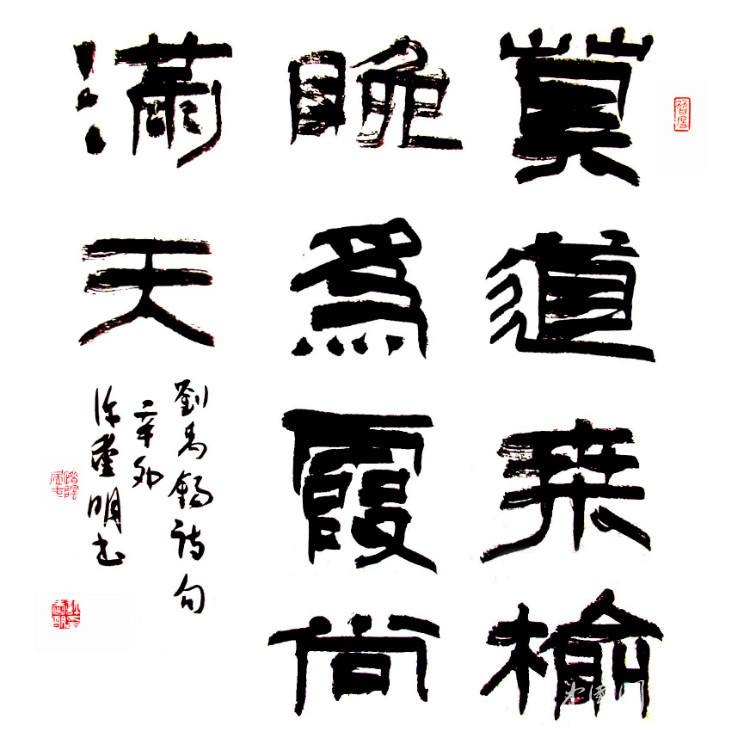 莫道桑榆
晚為霞尚
滿天
劉禹錫詩句
辛卯
徐明书